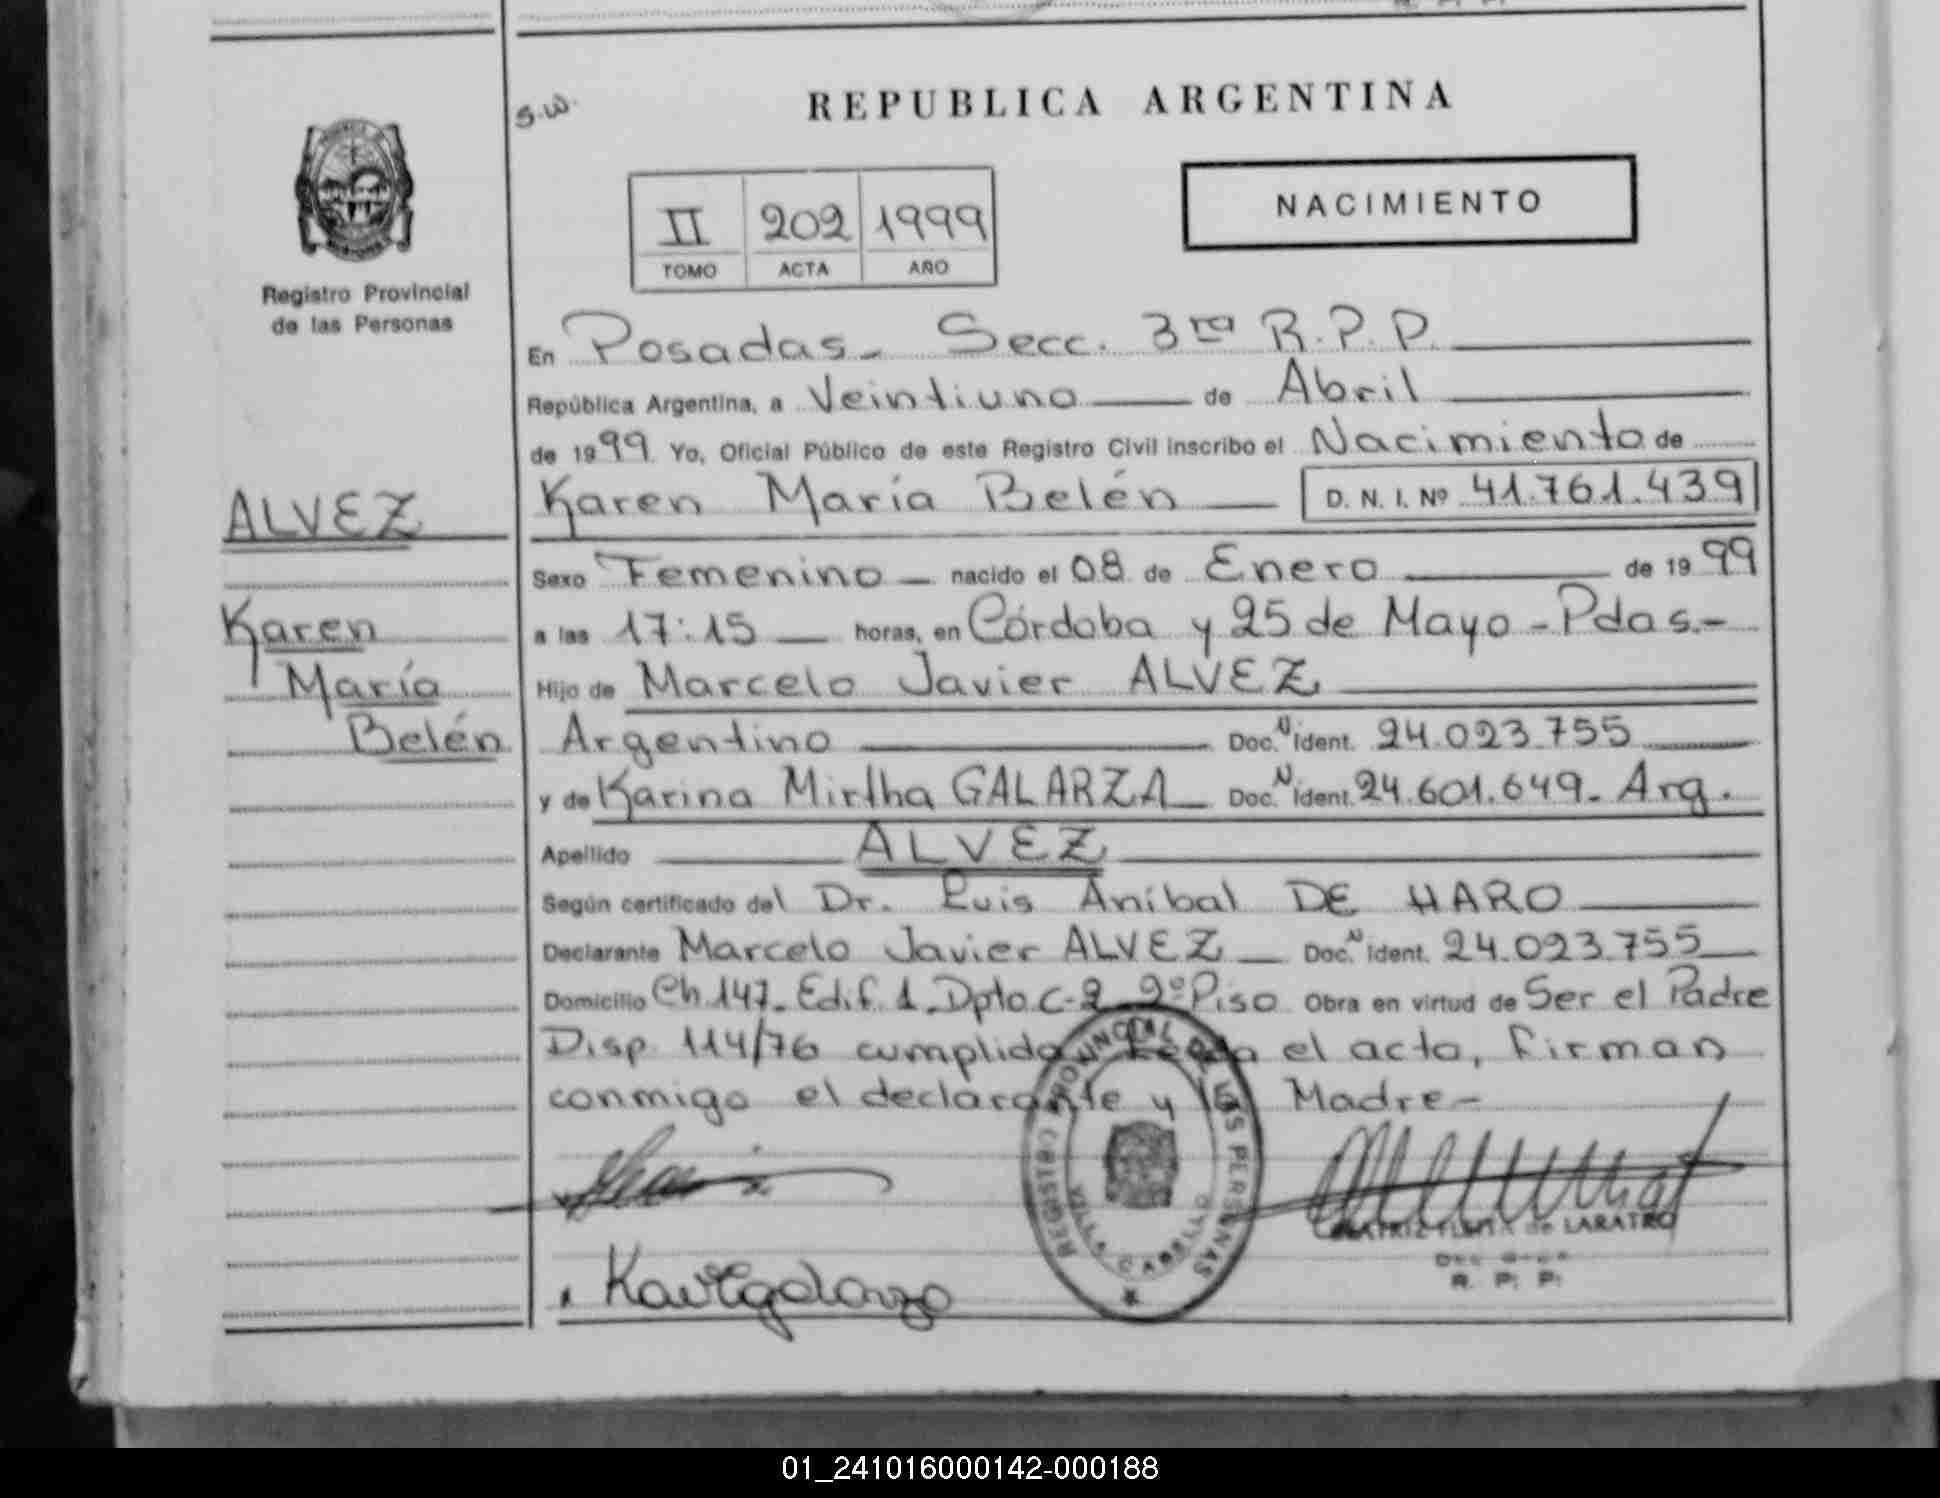 REPUBLICA ARGENTINA
S.W.
NACIMIENTO
II 202 1999
TOMO ACTA AÑO
Registro Provincial
de las Personas
En Posadas - Secc. 3ra R.P.P.
República Argentina, a Veintiuno de Abril
de 1999 Yo, Oficial Público de este Registro Civil inscribo el Nacimiento de
ALVEZ
Karen María Belén D. N. I. Nº 41.761.439
Sexo Femenino nacido el 08 de Enero de 1999
Karen
a las 17:15 horas, en Córdoba y 25 de Mayo - Pdas.-
María
Hijo de Marcelo Javier ALVEZ
Belén
Argentino Doc. N Ident. 24.023.755
y de Karina Mirtha GALARZA Doc. N Ident. 24.601.649- Arg.
Apellido ALVEZ
Según certificado del Dr. Luis Aníbal DE HARO
Declarante Marcelo Javier ALVEZ Doc. N Ident. 24.023.755
Domicilio Ch 147- Edif. 1- Dpto C-2 2º Piso Obra en virtud de Ser el Padre
Disp. 114/76 cumplida el acto, firman
conmigo el declarante y la Madre-
REGISTRO PROVINCIAL DE LAS PERSONAS
VILLA CABELLO
de LARATRO
R. P. P.
01_241016000142-000188